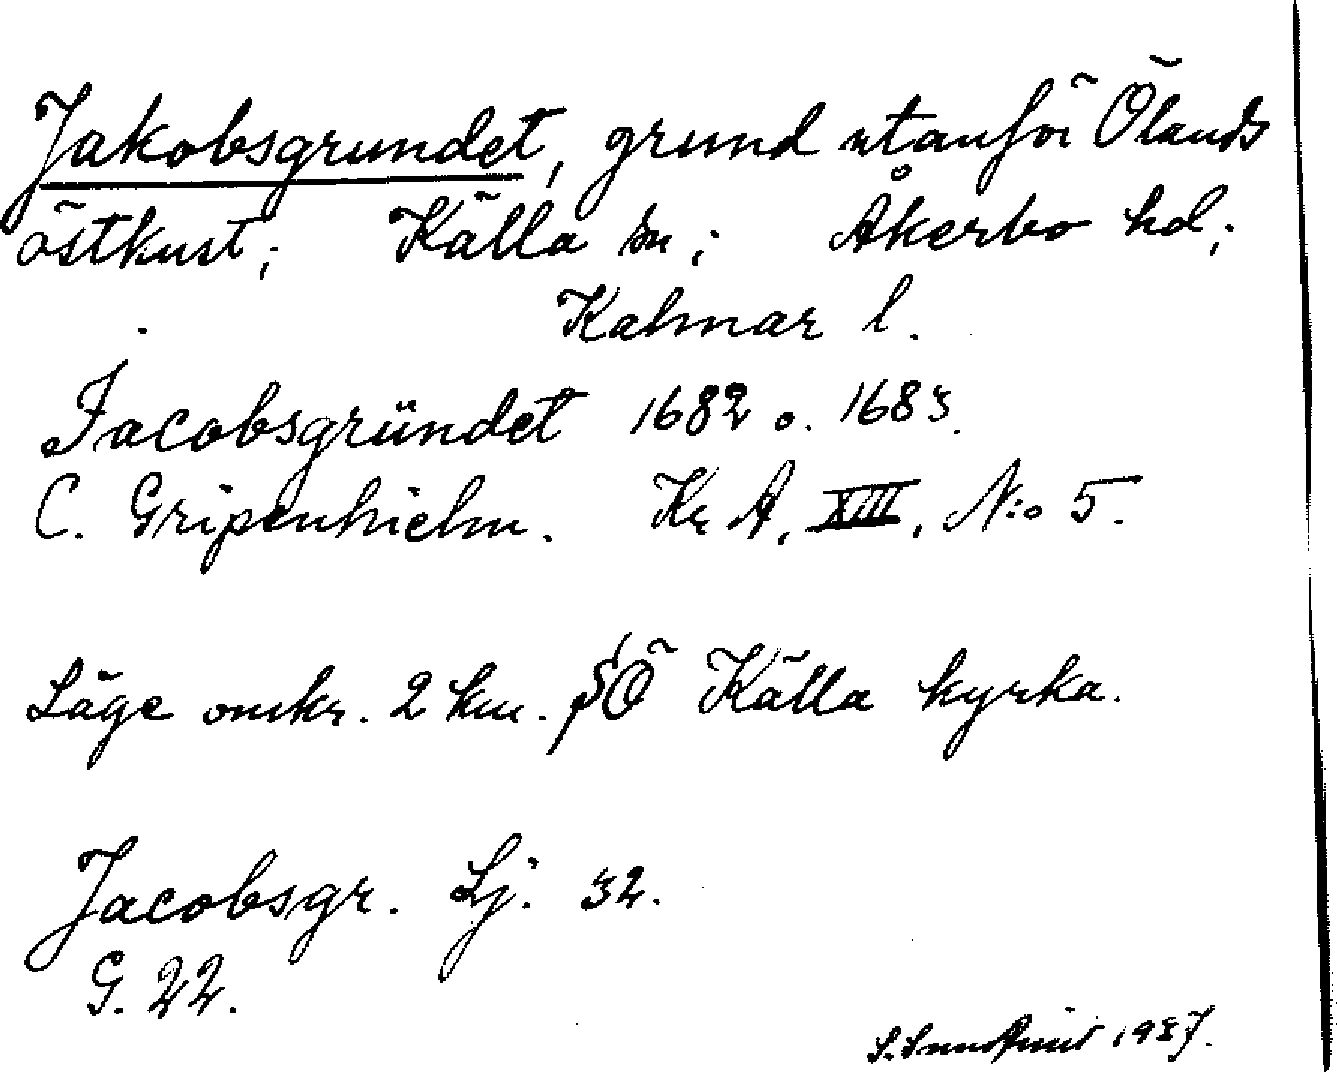 Jakobsgrundet, grund utanför Ölands
östkust; Källa sn; Åkerbo hd;
Kalmar l.
Jacobsgründet 1682 o. 1683.
C. Gripenhielm. Kr A, XIII, N:o 5.
Läge omkr. 2 km. SÖ Källa kyrka.
Jacobsgr. Lj. 32.
G. 22.
1937.